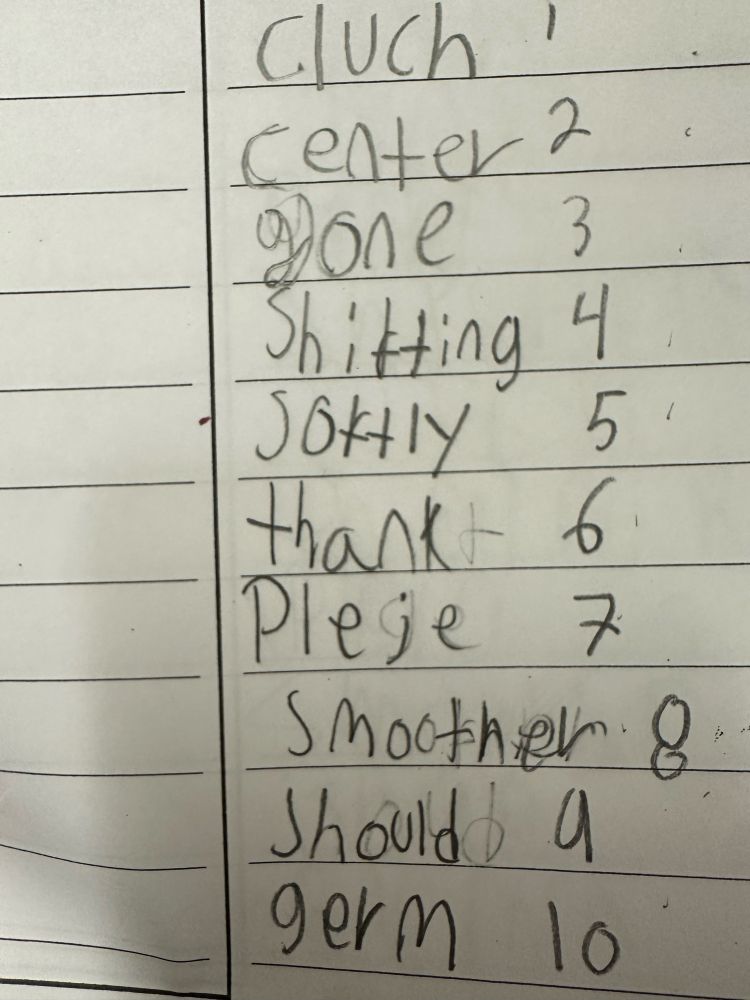 Cluch 1
Center 2
gone 3
Shifting 4
Softly 5
thank 6
Pleje 7
Smoother 8
Should 9
germ 10